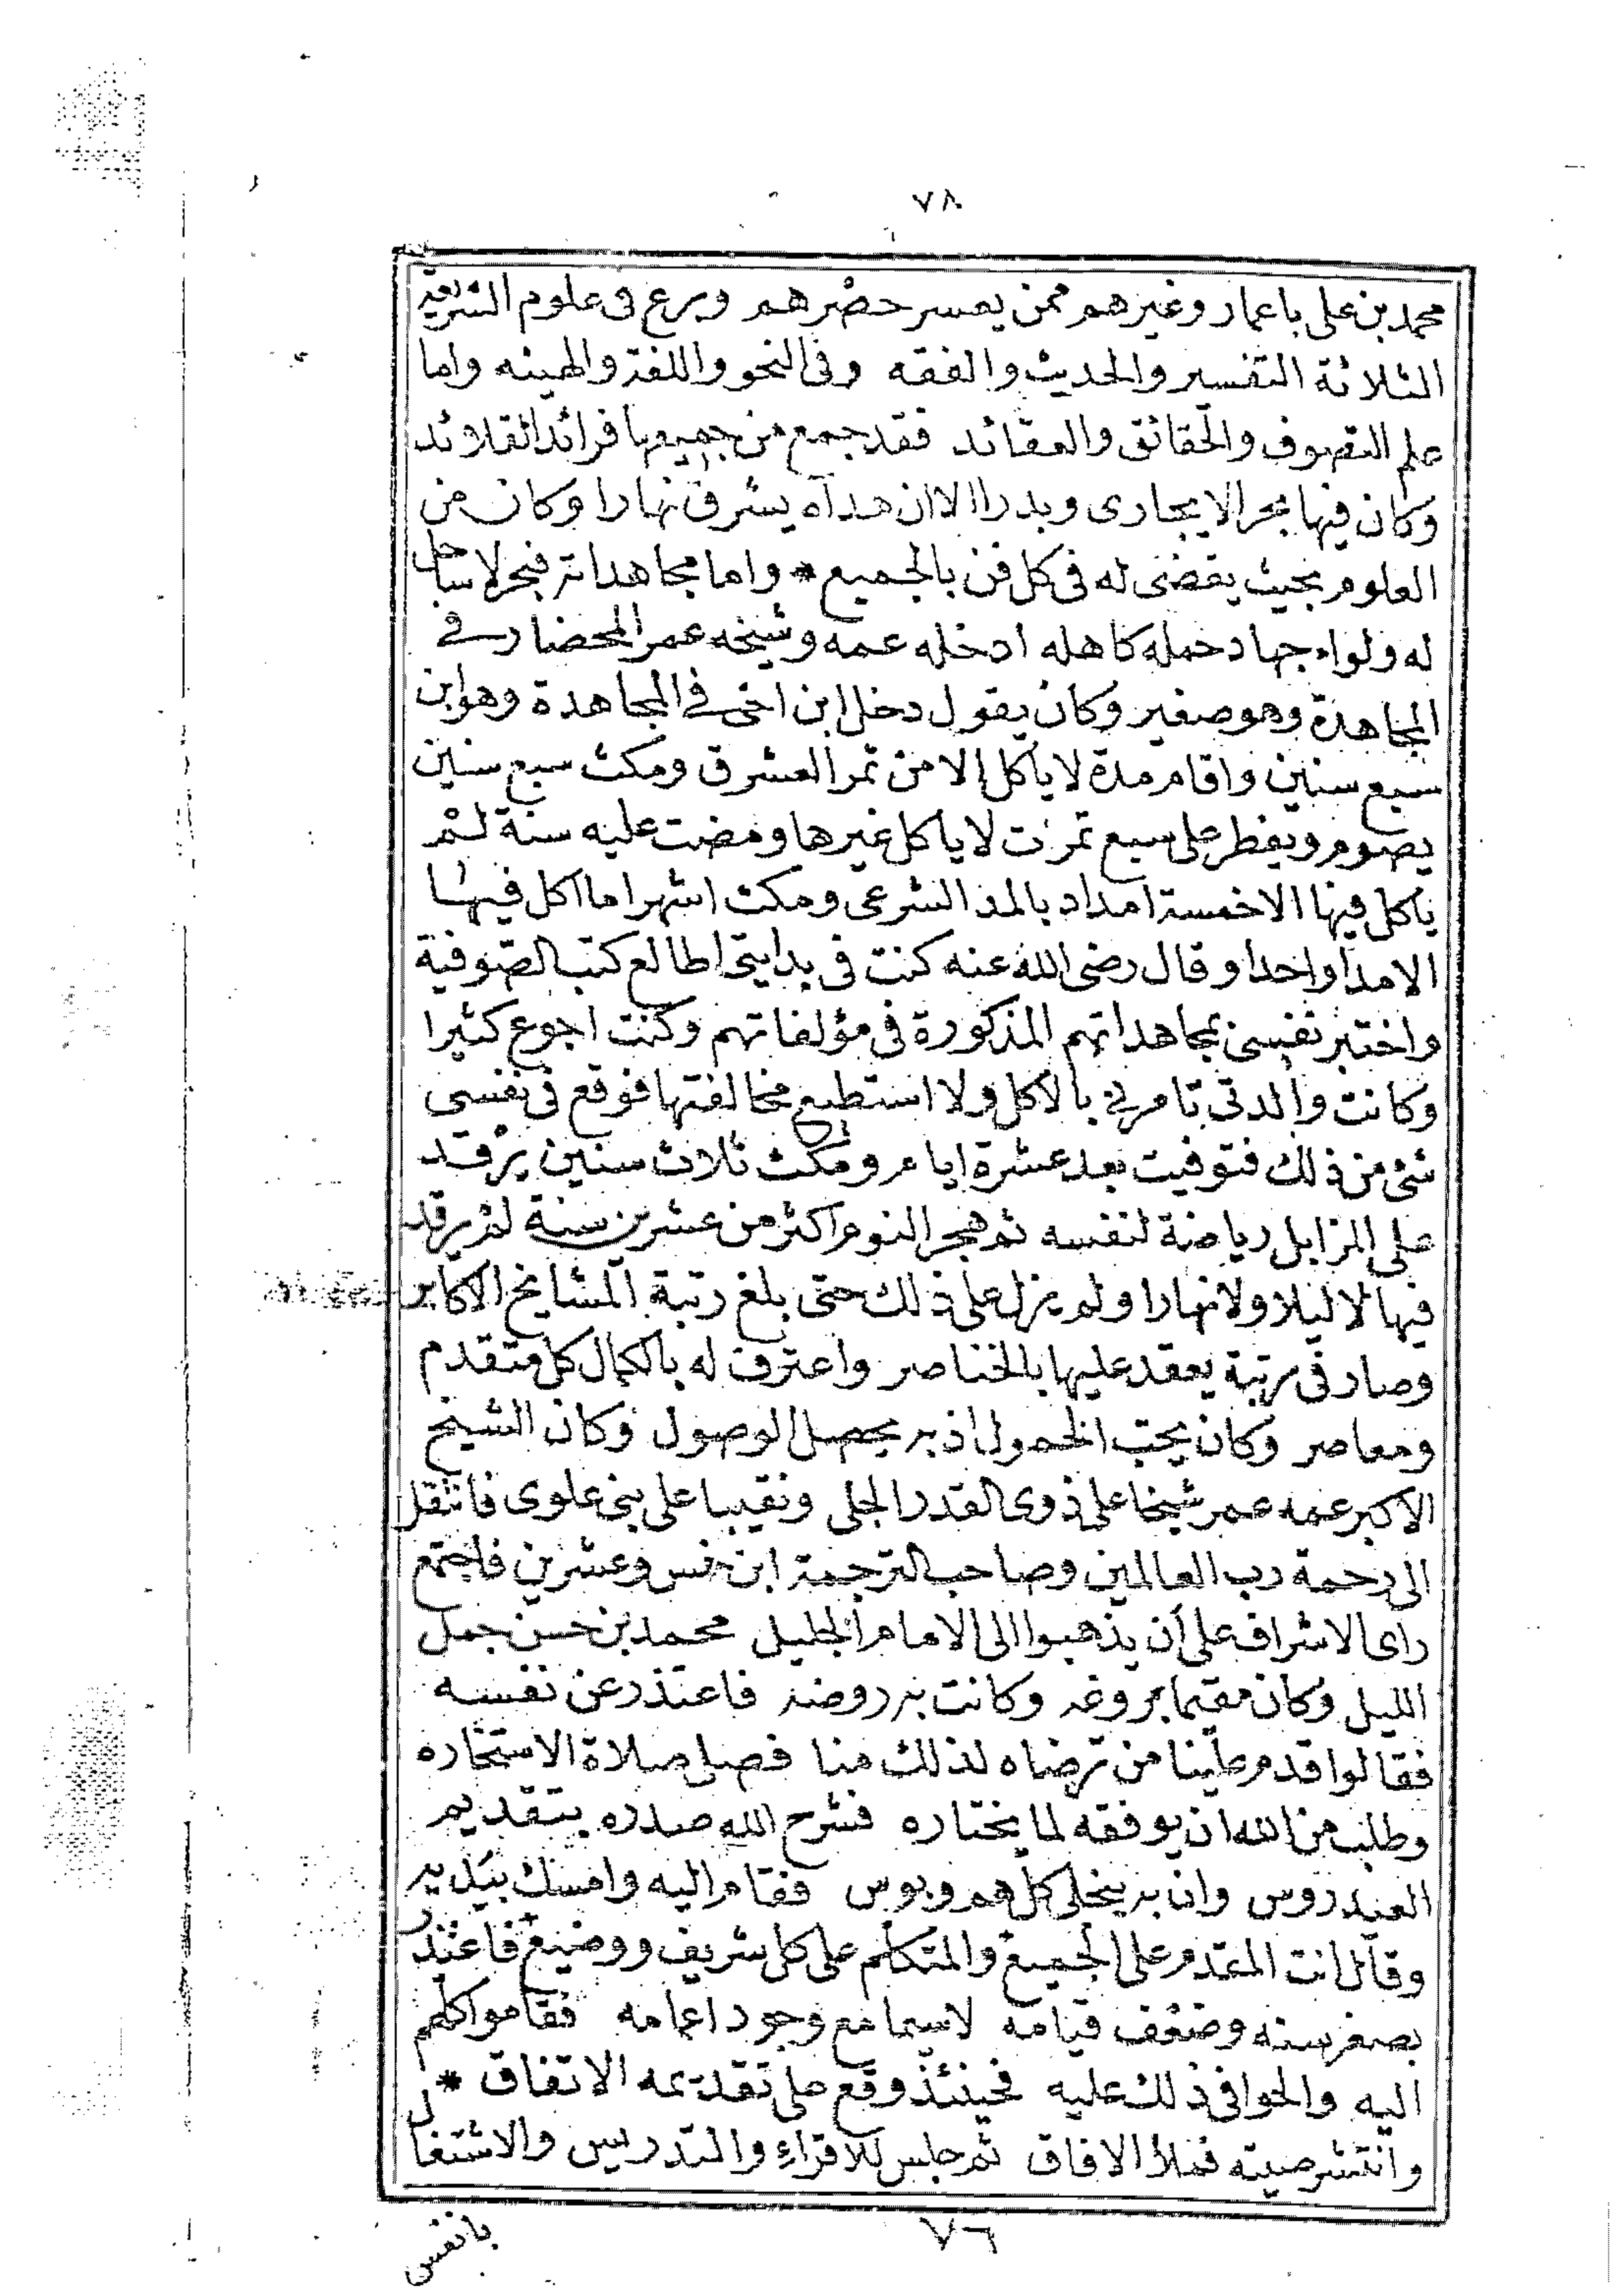 ٧٨
محمد بن على باعمار وغيرهم ممن يعسر حصرهم وبرع فى علوم الشريعة
الثلاثة التفسير والحديث والفقه وفى النحو واللغة والهيئه واما
علم التصوف والحقائق والعقائد فقد جمع من جميعها فرائد القلائد
وكان فيها بحرا لا يجارى وبدرا الا ان هداه يشرق نهارا وكان من
العلوم بحيث يقضى له فى كل فن بالجميع * واما مجاهداته فبحر لا ساحل
له ولواء جهاد حمله كاهله ادخله عمه وشيخه عمر المحضار فى
المجاهدة وهو صغير وكان يقول دخل ابن اخى فى المجاهدة وهو ابن
سبع سنين واقام مدة لا ياكل الا من ثمر العشرق ومكث سبع سنين
يصوم ويفطر على سبع تمرات لا ياكل غيرها ومضت عليه سنة لم
ياكل فيها الا خمسة امداد بالمد الشرعى ومكث اشهرا ما اكل فيها
الا مدا واحدا وقال رضى الله عنه كنت فى بدايتى اطالع كتب الصوفية
واختبر نفسى بمجاهداتهم المذكورة فى مؤلفاتهم وكنت اجوع كثيرا
وكانت والدتى تامرنى بالاكل ولا استطيع مخالفتها فوقع فى نفسى
شئ من ذلك فتوفيت بعد عشرة ايام ومكث ثلاث سنين يرقد
على المزابل رياضة لنفسه ثم هجر النوم اكثر من عشرين سنة لم يرقد
فيها لا ليلا ولا نهارا ولم يزل على ذلك حتى بلغ رتبة المشايخ الاكابر
وصار فى رتبة يعقد عليها بالخناصر واعترف له بالكمال كل متقدم
ومعاصر وكان يحب الخمول اذ به يحصل الوصول وكان الشيخ
الاكبر عمه عمر شيخا على ذوى القدر الجلى ونقيبا على بنى علوى فانتقل
الى رحمة رب العالمين وصاحب الترجمة ابن خمس وعشرين فاجتمع
راى الاشراف على ان يذهبوا الى الامام الجليل محمد بن حسن جمل
الليل وكان مقيما بروغه وكانت به روضه فاعتذر عن نفسه
فقالوا قدم علينا من ترضاه لذلك منا فصلى صلاة الاستخاره
وطلب من الله ان يوفقه لما يختاره فشرح الله صدره بتقديم
العيدروس وان به ينجلى كل هم وبوس فقام اليه وامسك بيديه
وقال انت المقدم على الجميع والمتكلم على كل شريف ووضيع فاعتذر
بصغر سنه وضعف قيامه لاسيما مع وجود اعمامه فقاموا كلهم
اليه والحوا فى ذلك عليه فحينئذ وقع على تقديمه الاتفاق *
وانتشر صيته فملأ الافاق ثم جلس للاقراء والتدريس والاشتغال
بانفس
٧٦